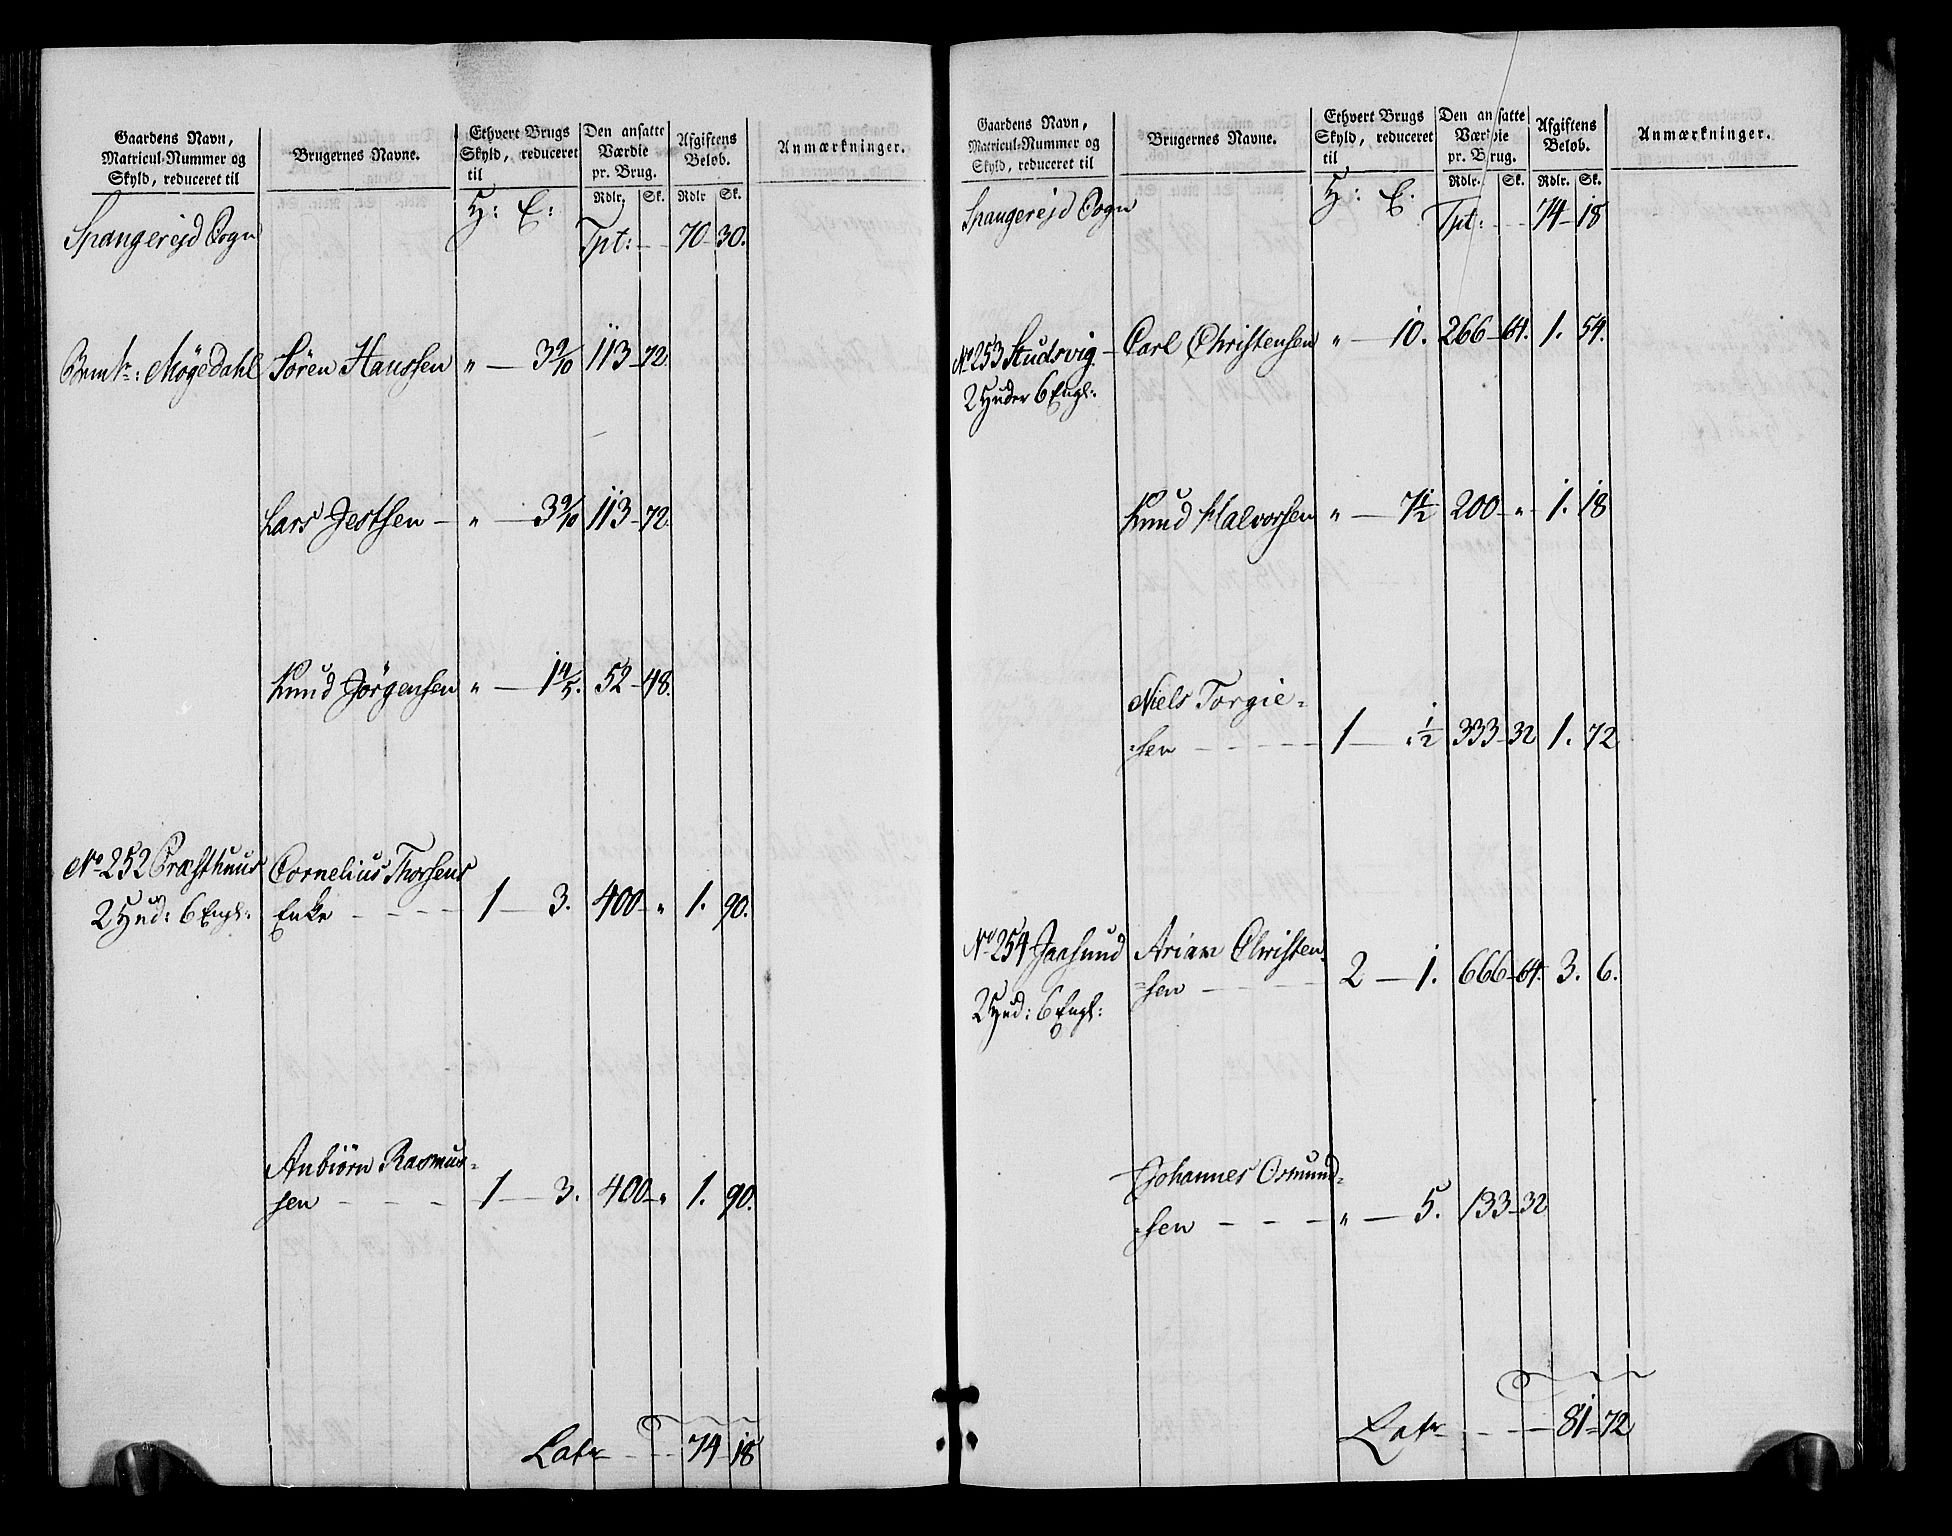 Gaardens Navn,
Matricul-Nummer og
Skyld, reduceret til
Brugernes Navne.
Ethvert Brugs
Skyld, reduceret
til
Den ansatte
Værdie
pr. Brug.
Afgiftens
Beløb.
Anmærkninger.
H: E:
Rdlr. Sk. Rdlr Sk.
Spangereid Sogn Tpt: - - 70 - 30.
Mögedahl Sören Hanssen " — 3 9/10 113 - 72.
Lars Jestsen — " — 3 9/10 113 - 72.
Knud Jörgensen " — 1 4/5. 52 - 48.
No 252 Præsthuus Cornelius Thorsens
2 Hud: 6 Engl: Enke - - - - 1 — 3. 400 - " 1. 90.
Anbiörn Rasmus-
sen - - - 1 — 3. 400 - " 1. 90.
Latr - - - 74 - 18
Gaardens Navn,
Matricul-Nummer og
Skyld, reduceret til
Brugernes Navne.
Ethvert Brugs
Skyld, reduceret
til
Den ansatte
Værdie
pr. Brug.
Afgiftens
Beløb.
Anmærkninger.
H: E:
Rdlr. Sk. Rdlr. Sk.
Spangereid Sogn Tpt: - - 74 - 18
No 253 Studsvig. — Carl Christensen " — 10. 266 - 64. 1. 54.
2 Huder 6 Engl:
Knud Halvorsen " — 7 1/2 200 - " - 1. 18
Niels Torgie=
=sen - - - - 1 — " 1/2 333 - 32 1. 72
No 254 Jaasund Arian Christen=
2 Hud: 6 Engl: =sen - - - - 2 — 1. 666 - 64. 3. 6.
Johannes Osmund=
=sen - - - " — 5. 133 - 32
Latr - - - 81 - 72